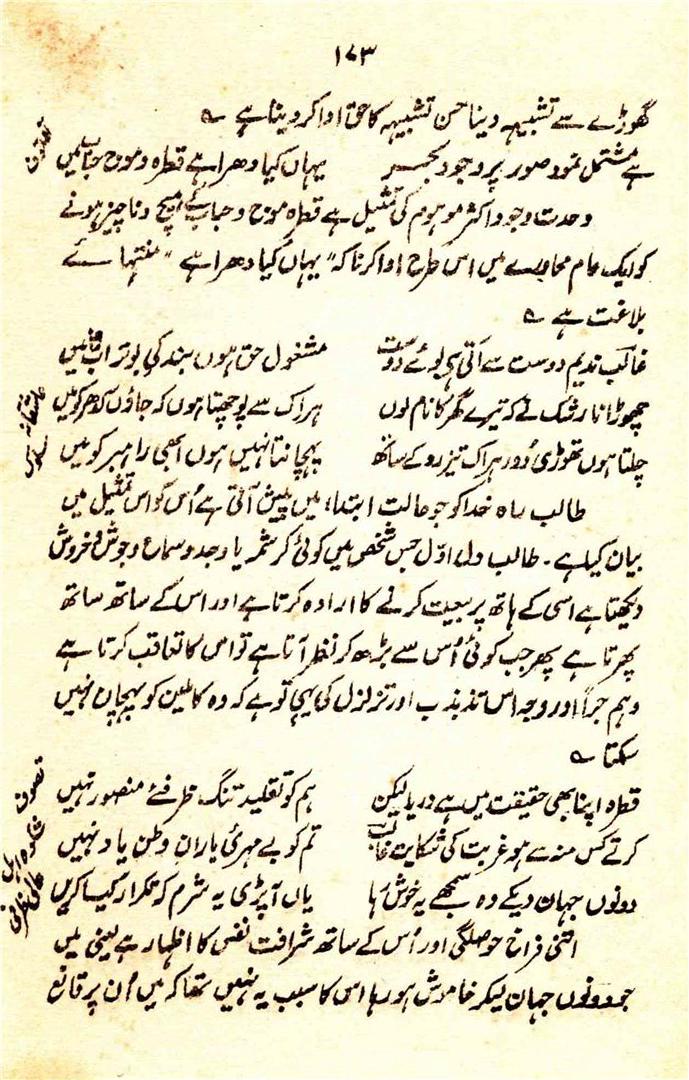 ۱۷۳
گھوڑے سے تشبیہہ دینا حسن تشبیہہ کا حق ادا کر دینا ہے ؎
تصوف
ہے مشتمل نمود صور پر وجود بحر یہاں کیا دھرا ہے قطرہ و موج حباب میں
وحدت وجود اکثر موہوم کی تمثیل ہے قطرہ موج و حباب کے ہیچ و ناچیز ہونے
کو ایک عام محاورے میں اس طرح ادا کرنا کہ "یہاں کیا دھرا ہے" منتہائے
بلاغت ہے ؎
غالب ندیم دوست سے آتی ہی بوئے دوست مشغول حق ہوں بندگی بوتراب میں
عاشقانہ
چھوڑا نا رشک نے کہ تیرے گھر کا نام لوں ہر اک سے پوچھتا ہوں کہ جاؤں کدھر کو میں
چلتا ہوں تھوڑی دور ہر اک تیز رو کے ساتھ پہچانتا نہیں ہوں ابھی راہبر کو میں
طالب راہ خدا کو جو حالت ابتدا میں پیش آتی ہے اُس کو اس تمثیل میں
بیان کیا ہے۔ طالب دل اوّل جس شخص میں کوئی کرشمہ یا وجد و سماع و جوش و خروش
دیکھتا ہے اسی کے ہاتھ پر بیعت کرنے کا ارادہ کرتا ہے اور اس کے ساتھ ساتھ
پھرتا ہے پھر جب کوئی اُس سے بڑھ کر نظر آتا ہے تو اس کا تعاقب کرتا ہے
وہم جرا اور وجہ اس تذبذب اور تزلزل کی یہی تو ہے کہ وہ کاملین کو پہچان نہیں
سکتا ؎
تصوف
قطرہ اپنا بھی حقیقت میں ہے دریا لیکن ہم کو تقلید تنگ ظرفئے منصور نہیں
شکوہ اہل
کرتے کس منہ سے ہو غربت کی شکایت غالب تم کو بے مہرئ یاران وطن یاد نہیں
دونوں جہان دیکے وہ سمجھے یہ خوش رہا یاں آپڑی یہ شرم کہ تکرار کیا کریں
اتنی فراخ حوصلگی اور اُس کے ساتھ شرافت نفس کا اظہار ہے یعنی میں
جو دونوں جہان لیکر خاموش ہو رہا اس کا سبب یہ نہیں تھا کہ میں اُن پر قانع